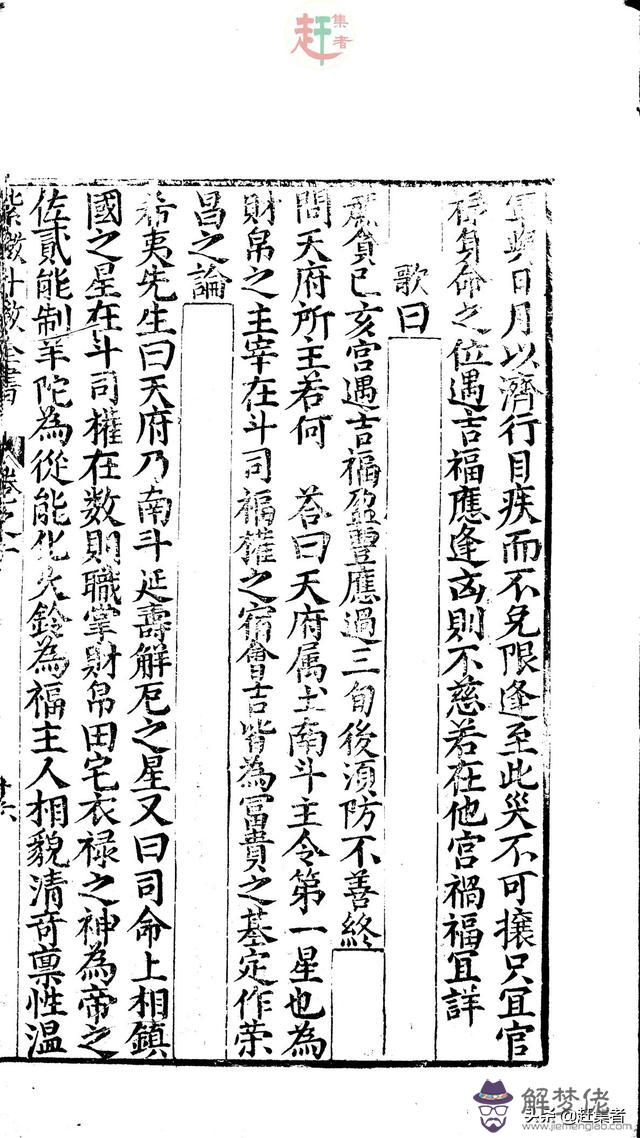 赶集者
軍與日月以濟行目疾而不免限逢至此災不可攘只宜官
禄身命之位遇吉福應逢凶則不慈若在他宮禍福宜詳
歌曰
廉貞巳亥宮遇吉福盈豐應過三旬後須防不善終
問天府所主若何 荅曰天府属土南斗主令第一星也為
財帛之主宰在斗司福權之宿會吉皆為冨貴之基定作荣
昌之論
希夷先生曰天府乃南斗延壽解厄之星又曰司命上相鎮
國之星在斗司權在数則職掌財帛田宅衣禄之神為帝之
佐貳能制羊陀為從能化火鈴為福主人相貌清奇禀性温
紫微斗数全書 卷之
头条 @赶集者
解梦佬
www.jiemenglao.com